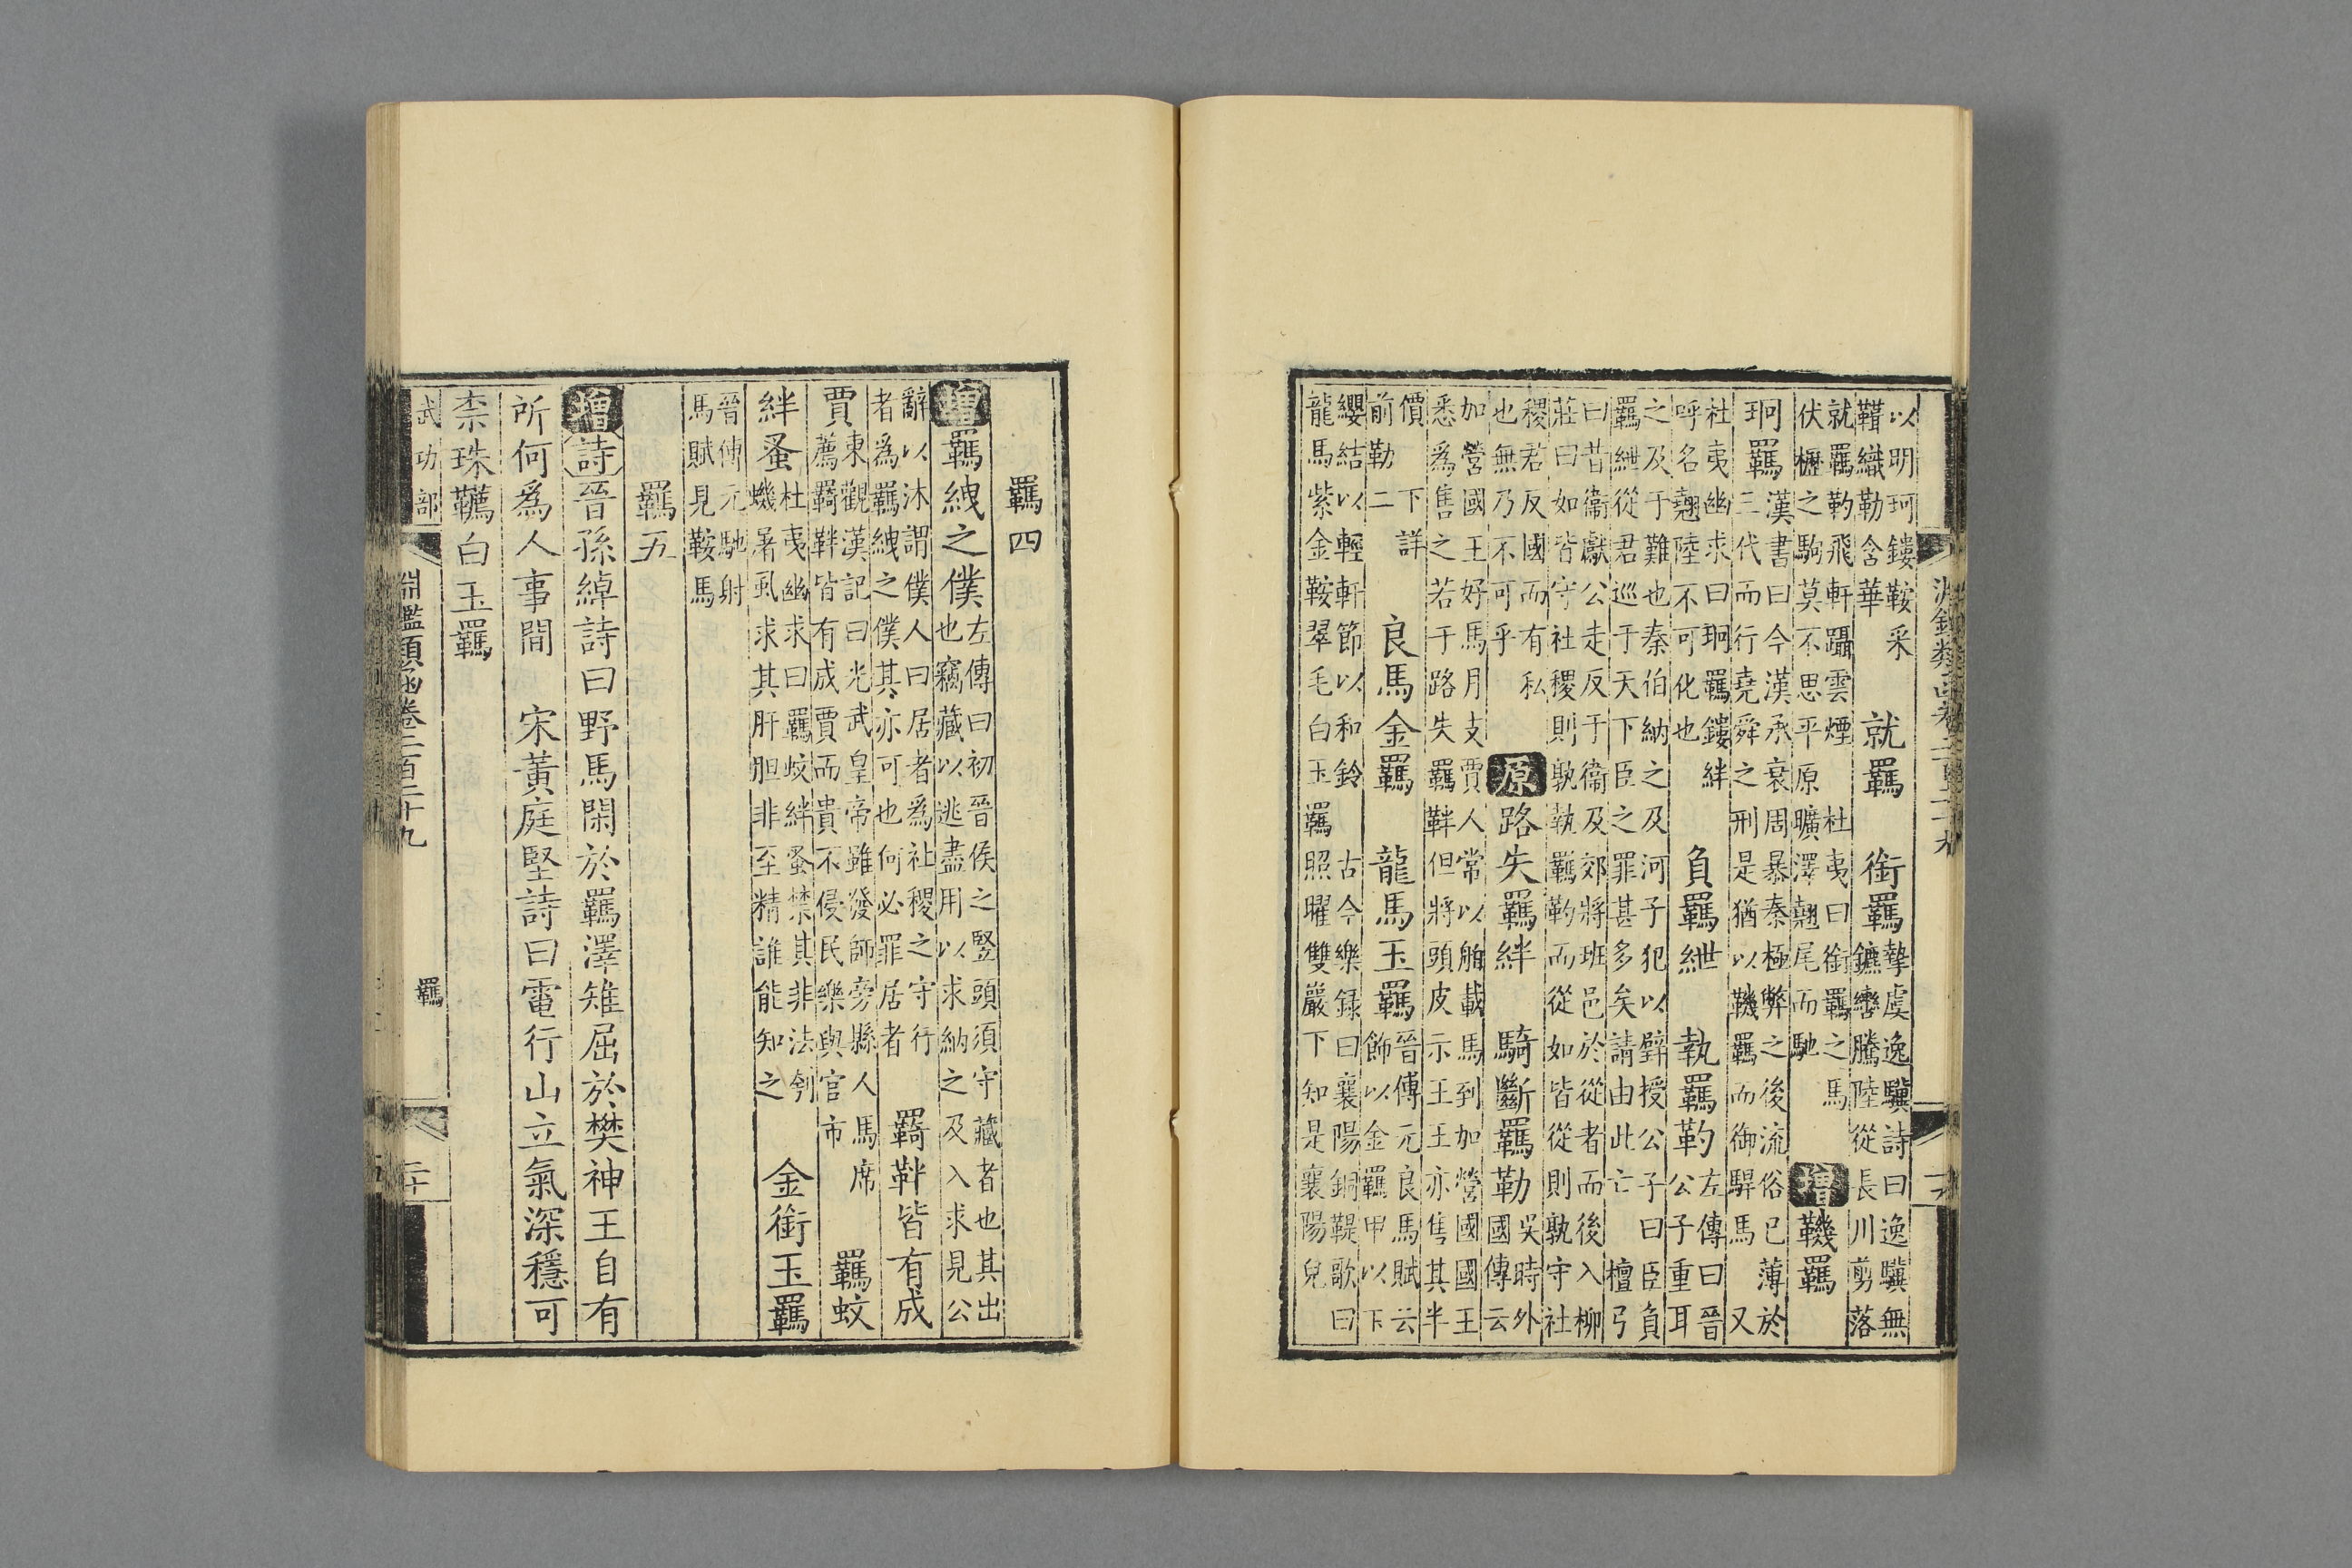 以明珂鏤鞍采
鞊織勒含華
就羈 銜羈
摯虞逸驥詩曰逸驥無
鑣轡騰陸從長川剪落
就羈靮飛軒躡雲煙 杜夷曰銜羈之馬
伏櫪之駒莫不思平原曠澤翹尾而馳
增 鞿羈
珂羈
漢書曰今漢承衰周暴秦極弊之後流俗已薄於
三代而行堯舜之刑是猶以鞿羈而御駻馬 又
杜夷幽求曰珂羈鏤絆
呼名翹陸不可化也
負羈紲 執羈靮
左傳曰晉
公子重耳
之及于難也秦伯納之及河子犯以璧授公子曰臣負
羈紲從君巡于天下臣之罪甚多矣請由此亡 檀弓
曰昔衞獻公走反于衞及郊將班邑於從者而後入柳
莊曰如皆守社稷則孰執羈靮而從如皆從則孰守社
稷君反國而有私
也無乃不可乎
原 路失羈絆 騎斷羈勒
吳時外
國傳云
加營國王好馬月支賈人常以舶載馬到加營國國王
悉爲售之若于路失羈靽但將頭皮示王王亦售其半
價 下詳
前勒二
良馬金羈 龍馬玉羈
晉傅元良馬賦云
飾以金羈申以下
纓結以輕軒節以和鈴 古今樂録曰襄陽銅鞮歌曰
龍馬紫金鞍翠毛白玉羈照曜雙巖下知是襄陽兒
羈四
增 羈絏之僕
左傳曰初晉侯之豎頭須守藏者也其出
也竊藏以逃盡用以求納之及入求見公
辭以沐謂僕人曰居者爲社稷之守行
者爲羈絏之僕其亦可也何必罪居者
羇靽皆有成
賈
東觀漢記曰光武皇帝雖發師旁縣人馬席
薦羇靽皆有成賈而貴不侵民樂與官市
羈蚊
絆蚤
杜夷幽求曰羈蚊絆蚤禁其非法刳
蟣屠虱求其肝胆非至精誰能知之
金銜玉羈
晉傅元馳射
馬賦見鞍馬
羈五
增 詩 晉孫綽詩曰野馬閑於羈澤雉屈於樊神王自有
所何爲人事間 宋黃庭堅詩曰電行山立氣深穩可
柰珠韉白玉羈
武功部
淵鑑類函卷二百二十九
羈
二十